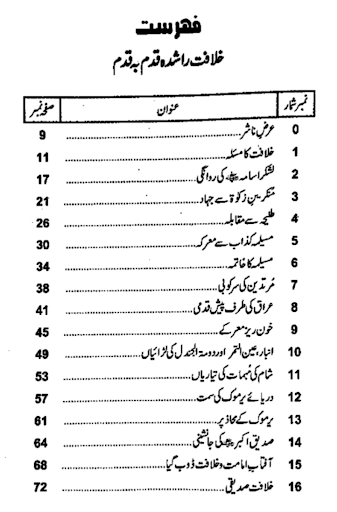 فہرست
خلافت راشدہ قدم بہ قدم
نمبر شمار عنوان صفحہ نمبر
0 عرض ناشر 9
1 خلافت کا مسئلہ 11
2 لشکر اسامہ ؓ کی روانگی 17
3 منکرین زکوٰۃ سے جہاد 21
4 طلیحہ سے مقابلہ 26
5 مسیلمہ کذاب سے معرکہ 30
6 مسیلمہ کا خاتمہ 34
7 مرتدین کی سرکوبی 38
8 عراق کی طرف پیش قدمی 41
9 خون ریز معرکے 45
10 انبار، عین التمر اور دومۃ الجندل کی لڑائیاں 49
11 شام کی مہمات کی تیاریاں 53
12 دریائے یرموک کی سمت 57
13 یرموک کے محاذ پر 61
14 صدیق اکبر ؓ کی جانشینی 64
15 آفتاب امامت و خلافت ڈوب گیا 68
16 خلافت صدیقی 72